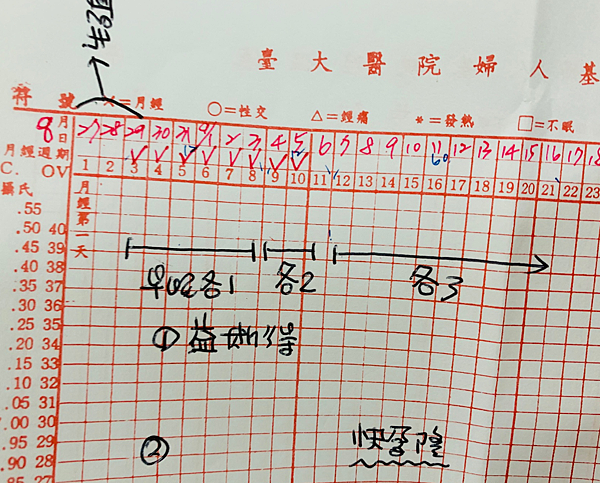 →生理
臺大醫院婦人基
符號 ×=月經 ○=性交 △=經痛 *=發熱 □=不眠
8月日 27 28 29 30 31 9/1 2 3 4 5 6 7 8 9 10 11 12 13 14 15 16 17 18
60
月經週期 1 2 3 4 5 6 7 8 9 10 11 12 13 14 15 16 17 18 19 20 21 22 23
C. OV
攝氏 月經第一天
.55
.50 40
.45 39
.40 38
.35 37
.30 36
.25 35
.20 34
.15 33
.10 32
.05 31
.00 30
.95 29
.90 28
27
早晚各1 各2 各3
①益
② 快孕隆